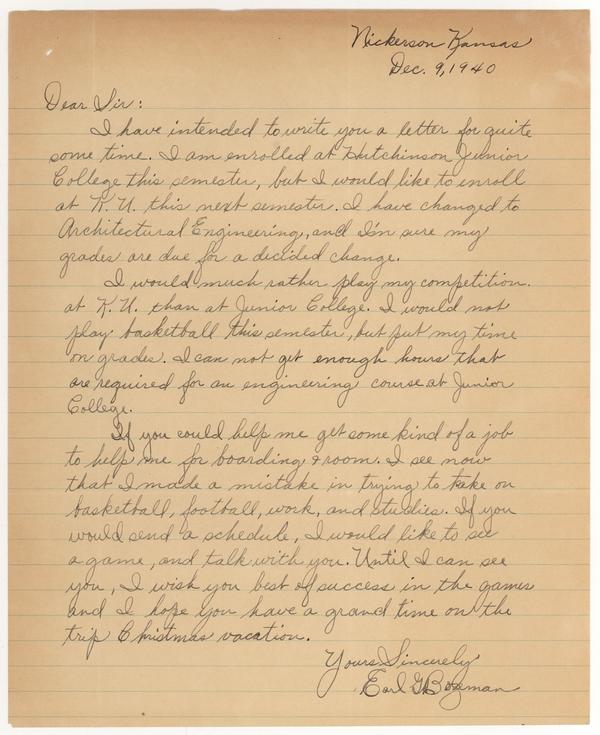 Nickerson Kansas
Dec. 9, 1940
Dear Sir:
I have intended to write you a letter for quite
some time. I am enrolled at Hutchinson Junior
College this semester, but I would like to enroll
at K.U. this next semester. I have changed to
Architectural Engineering, and I'm sure my
grades are due for a decided change.
I would much rather play my competition.
at K.U. than at Junior College. I would not
play basketball this semester, but put my time
on grades. I can not get enough hours that
are required for an engineering course at Junior
College.
If you could help me get some kind of a job
to help me for boarding & room. I see now
that I made a mistake in trying to take on
basketball, football, work, and studies. If you
would send a schedule, I would like to see
a game, and talk with you. Until I can see
you, I wish you best of success in the games
and I hope you have a grand time on the
trip Christmas vacation.
Yours Sincerely
Earl G Bozeman